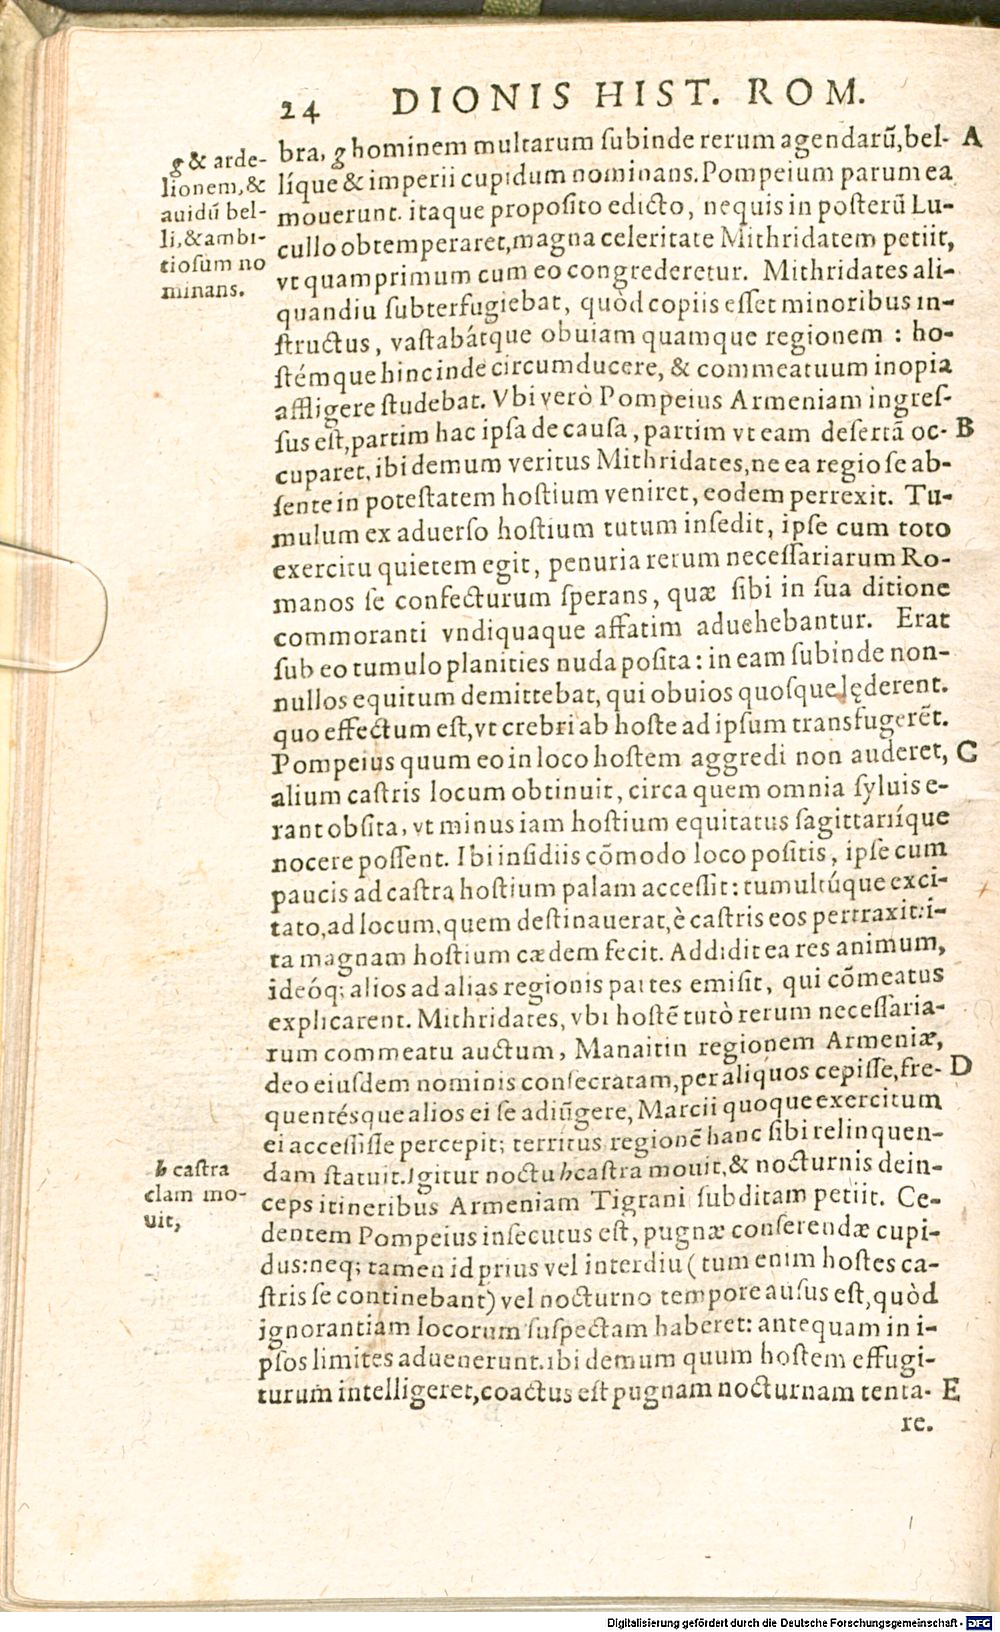 24 DIONIS HIST. ROM.
bra, g hominem multarum ſubinde rerum agendarũ, bel- A
líque & imperii cupidum nominans. Pompeium parum ea
mouerunt. itaque propoſito edicto, nequis in poſterũ Lu-
cullo obtemperaret, magna celeritate Mithridatem petiit,
vt quamprimum cum eo congrederetur. Mithridates ali-
quandiu ſubterfugiebat, quòd copiis eſſet minoribus in-
ſtructus, vaſtabátque obuiam quamque regionem : ho-
ſtémque hinc inde circumducere, & commeatuum inopia
affligere ſtudebat. Vbi verò Pompeius Armeniam ingreſ-
ſus eſt, partim hac ipſa de cauſa, partim vt eam deſertã oc- B
cuparet, ibi demum veritus Mithridates, ne ea regio ſe ab-
ſente in poteſtatem hoſtium veniret, eodem perrexit. Tu-
mulum ex aduerſo hoſtium tutum inſedit, ipſe cum toto
exercitu quietem egit, penuria rerum neceſſariarum Ro-
manos ſe confecturum ſperans, quæ ſibi in ſua ditione
commoranti vndiquaque affatim aduehebantur. Erat
ſub eo tumulo planities nuda poſita : in eam ſubinde non-
nullos equitum demittebat, qui obuios quoſque lęderent.
quo effectum eſt, vt crebri ab hoſte ad ipſum transfugerẽt.
Pompeius quum eo in loco hoſtem aggredi non auderet, C
alium caſtris locum obtinuit, circa quem omnia ſyluis e-
rant obſita, vt minus iam hoſtium equitatus ſagittariíque
nocere poſſent. Ibi inſidiis cõmodo loco poſitis, ipſe cum
paucis ad caſtra hoſtium palam acceſſit : tumultúque exci-
tato, ad locum, quem deſtinauerat, è caſtris eos pertraxit: i-
ta magnam hoſtium cædem fecit. Addidit ea res animum,
ideóq; alios ad alias regionis partes emiſit, qui cõmeatus
explicarent. Mithridates, vbi hoſtẽ tutò rerum neceſſaria-
rum commeatu auctum, Manaitin regionem Armeniæ,
deo eiuſdem nominis conſecratam, per aliquos cepiſſe, fre- D
quentésque alios ei ſe adiũgere, Marcii quoque exercitum
ei acceſſiſſe percepit; territus regionẽ hanc ſibi relinquen-
dam ſtatuit. Igitur noctu h caſtra mouit, & nocturnis dein-
ceps itineribus Armeniam Tigrani ſubditam petiit. Ce-
dentem Pompeius inſecutus eſt, pugnæ conferendæ cupi-
dus: neq; tamen id prius vel interdiu ( tum enim hoſtes ca-
ſtris ſe continebant) vel nocturno tempore auſus eſt, quòd
ignorantiam locorum ſuſpectam haberet: antequam in i-
pſos limites aduenerunt. ibi demum quum hoſtem effugi-
turum intelligeret, coactus eſt pugnam nocturnam tenta- E
re.
g & arde-
lionem, &
auidũ bel-
li, & ambi-
tioſum no
minans.
h caſtra
clam mo-
uit,
Digitalisierung gefördert durch die Deutsche Forschungsgemeinschaft - DFG